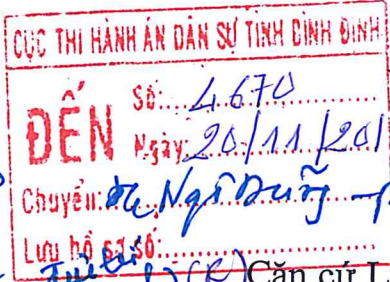 CỤC THI HÀNH ÁN DÂN SỰ TỈNH BÌNH ĐỊNH
ĐẾN
Số: 4670
Ngày: 20/11/201
Chuyển:
Lưu hồ sơ số:
Căn cứ L